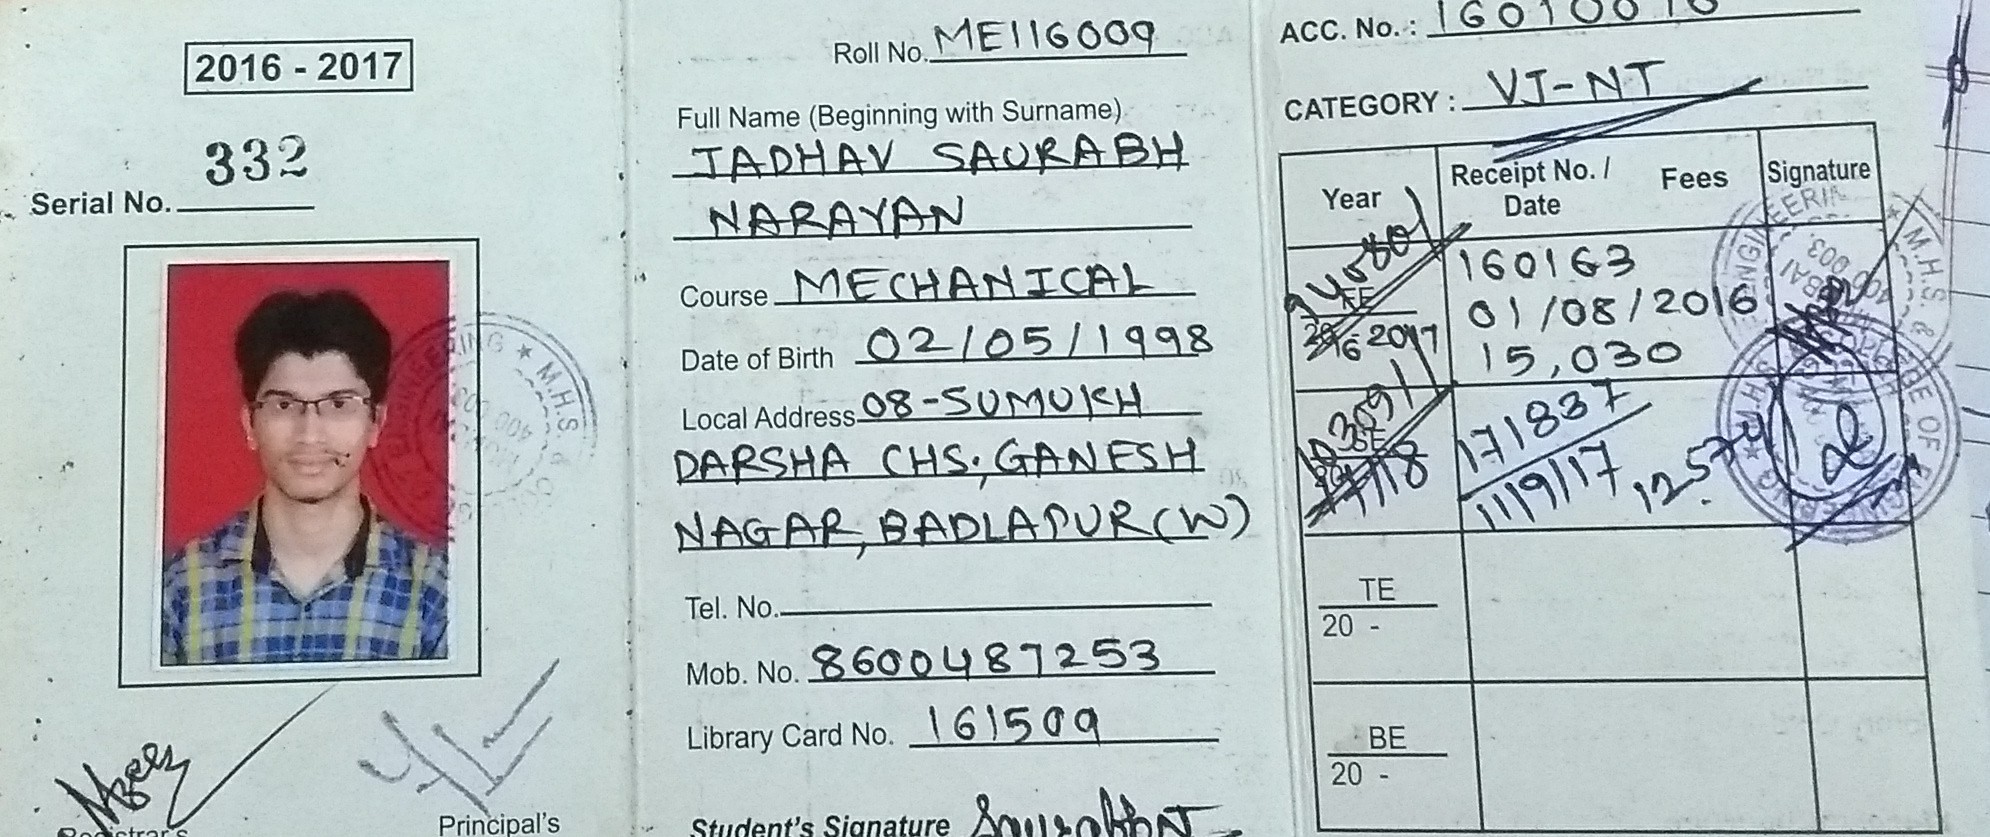 2016 - 2017
Serial No. 332
Principal's
Roll No. ME116009
Full Name (Beginning with Surname)
JADHAV SAURABH
NARAYAN
Course MECHANICAL
Date of Birth 02/05/1998
Local Address 08-SUMUKH
DARSHA CHS, GANESH
NAGAR, BADLAPUR (W)
Tel. No.
Mob. No. 8600487253
Library Card No. 161509
Student's Signature
ACC. No. :
CATEGORY : VJ-NT
Year Receipt No. / Date Fees Signature
FE
2017
160163
01/08/2016
15,030
SE
171837
1/9/17
TE
20 -
BE
20 -
ENGINEERING ★ M.H.S.